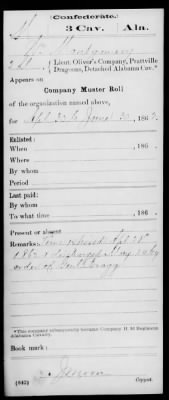 (Confederate.)
3 Cav. Ala.
Wm Montgomery
Lieut. Oliver's Company, Prattville
Dragoons, Detached Alabama Cav.*
Appears on
Company Muster Roll
of the organization named above,
for Apl 22 to June 30, 186 2.
Enlisted:
When , 186 .
Where
By whom
Period
Last paid:
By whom
To what time , 186 .
Present or absent
Remarks: Time expired Apl 28
1862 & discharged May by
order of Genl Bragg
*This company subsequently became Company H, 3d Regiment
Alabama Cavalry.
Book mark:
(642) Copyist.